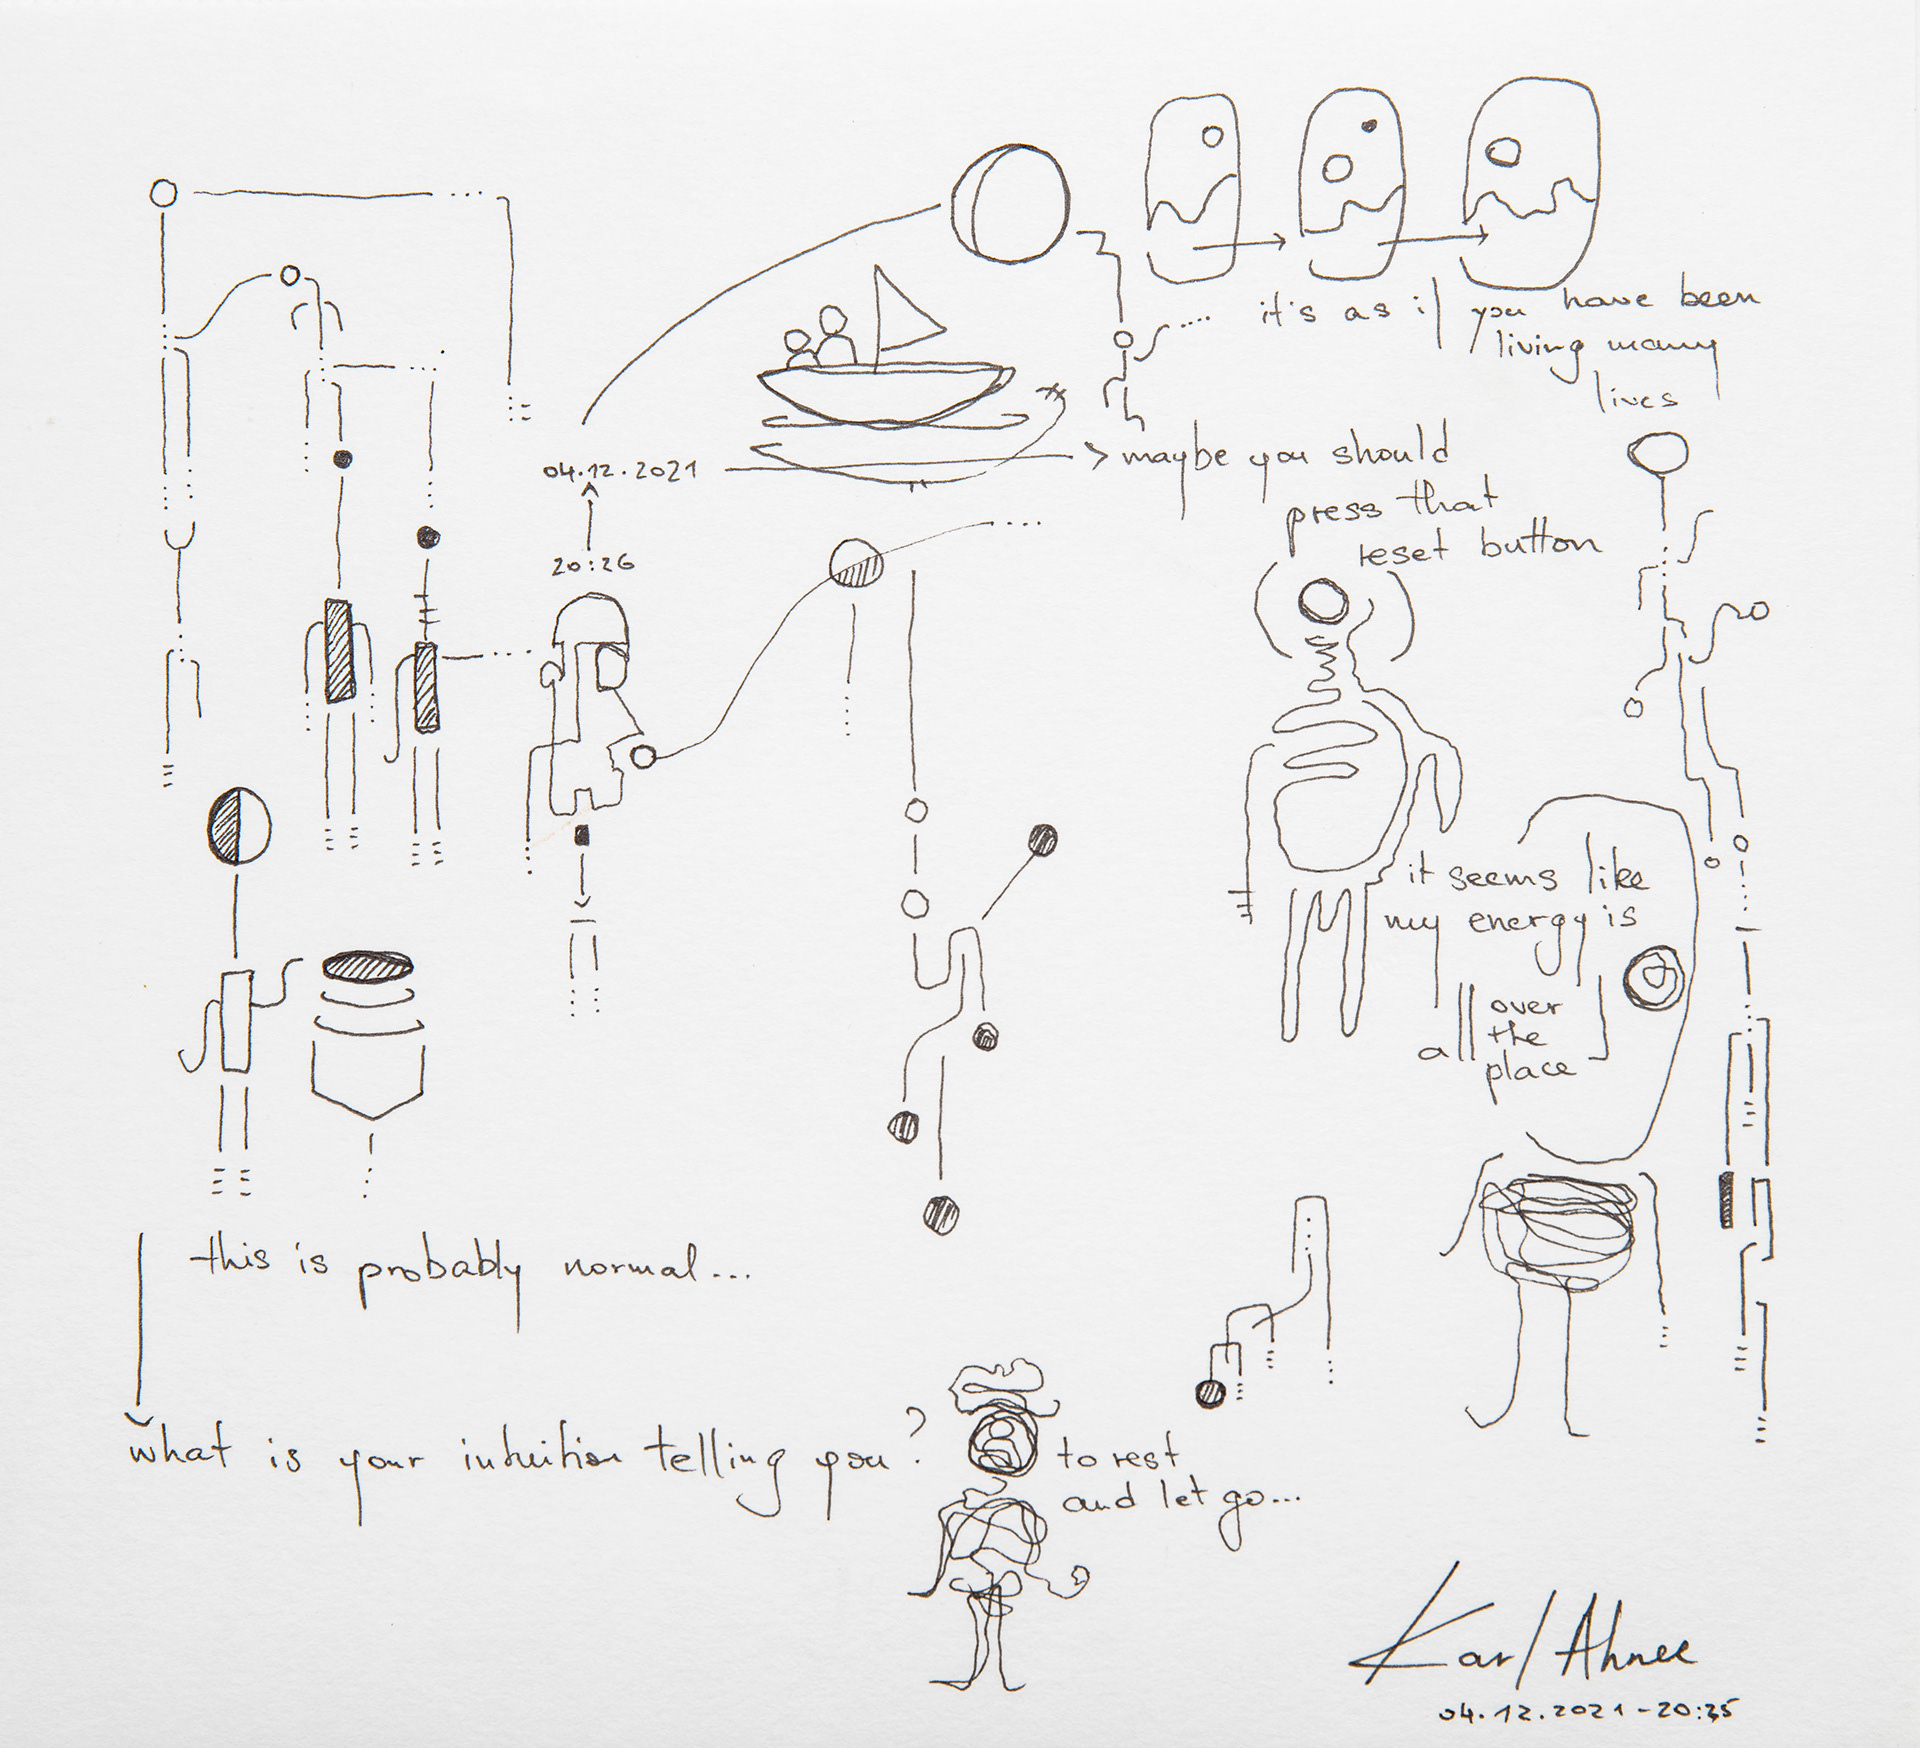 it's as if you have been
living many
lives
04.12.2021
maybe you should
press that
reset button
20:26
it seems like
my energy is
all over
the
place
this is probably normal...
what is your intuition telling you?
to rest
and let go...
Karl Ahnee
04.12.2021-20:35